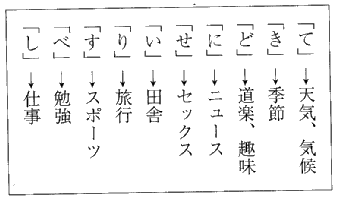 「て」→天気、気候
「き」→季節
「ど」→道楽、趣味
「に」→ニュース
「せ」→セックス
「い」→田舎
「り」→旅行
「す」→スポーツ
「べ」→勉強
「し」→仕事